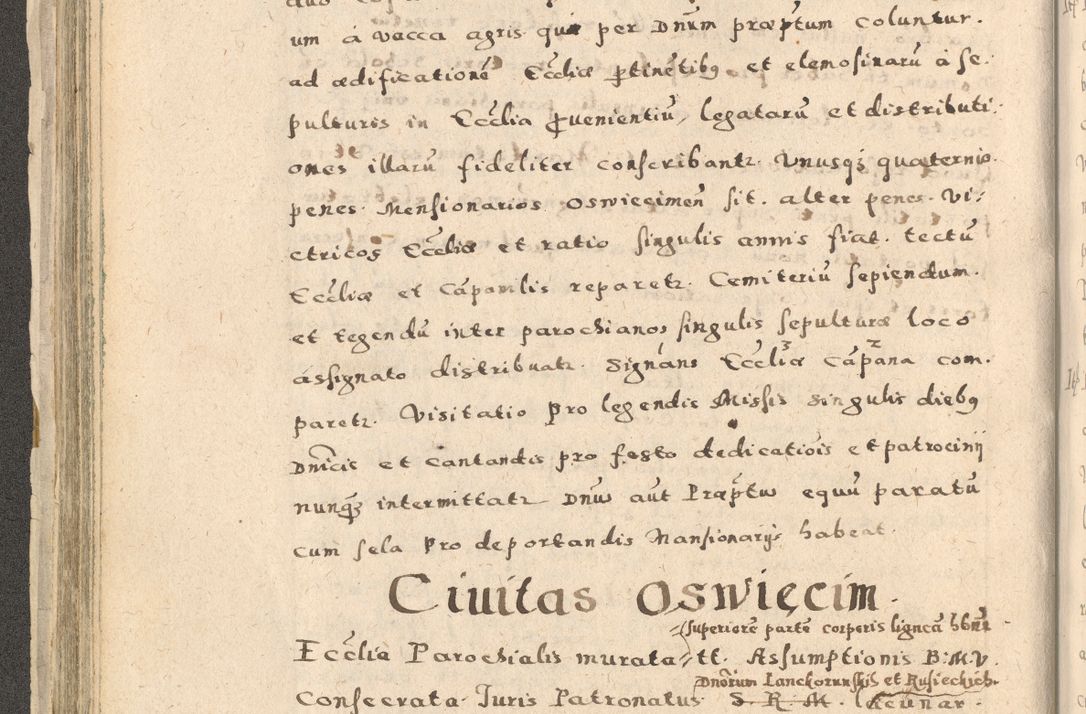 um á vacca agris quæ per Dnūm præptum coluntur.
ad ædificationē Ecćliæ ptinētibꝯ et elemosinarū à se.
pulturis in Ecćlia pvenientiū, legatarū et distributi:
ones illarū fideliter conscribantr. Unusqꝫ quaternio.
penes Mensionarios Oswiecimeñ sit. alter penes Vi:
ctricos Ecćliæ et ratio singulis annis fiat. tectū
Ecćliæ et Cāpanilis reparetr. Cemiteriū sepiendum.
et tegendū inter parochianos singulis sepulturæ loco
assignato distribuatr. Signáns Ecćliæ Cāpana com.
paretr. Visitatio pro legendis Missis Singulis diebꝯ
Dnicis et cantandis pro festo dedicatiōis et patrocinij
nunqꝫ intermittatr Dnus aut Præptus equū paratū
cum sela pro deportandis Mansionarijs habeat.
Civitas Oswięcim.
superiorē partē corporis ligneā hbns
Ecćlia Parochialis murata tt. Assumptionis B.M.V.
Dnorum Lanckorunskis et Rusieckich.
Consecrata Juris Patronatus S. R. M. lacunar.